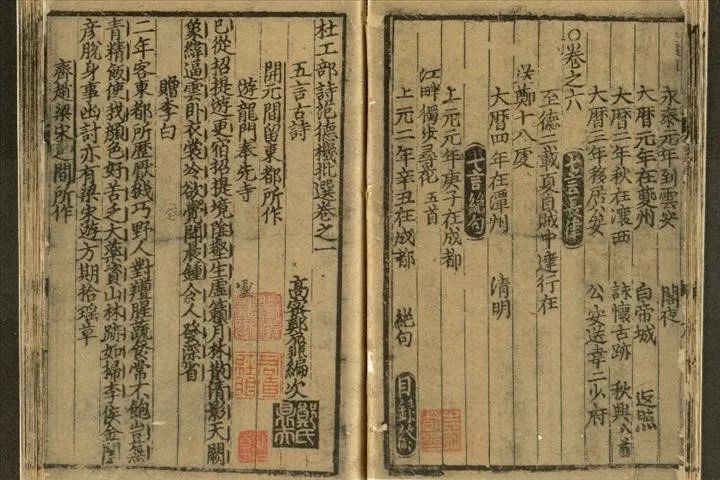 永泰元年到雲安　閣夜
大曆元年在夔州　白帝城　返照
大曆年秋在瀼西　詠懷古跡　秋興八首
大曆三年移居公安　公安送韋二少府
卷之六
七言長律
至德二載夏自賊中達行在
鄭十八虔
大曆四年在潭州　清明
七言絕句
上元元年庚子在成都
江畔獨步尋花　五首
上元二年辛丑在成都　絕句
目錄終
杜工部詩范德機批選卷之一
高安鄭鼐編次
五言古詩
開元間留東都所作
遊龍門奉先寺
已從招提遊更宿招提境陰壑生虛籟月林散清影天闕
象緯逼雲臥衣裳冷欲覺聞晨鍾令人發深省
贈李白
二年客東都所歷厭機巧野人對羶腥蔬食常不飽豈無
青精飯使我顏色好苦乏大藥資山林跡如掃李侯金閨
彥脫身事幽討亦有梁宋遊方期拾瑤草
齊趙梁宋之間所作
鄭氏